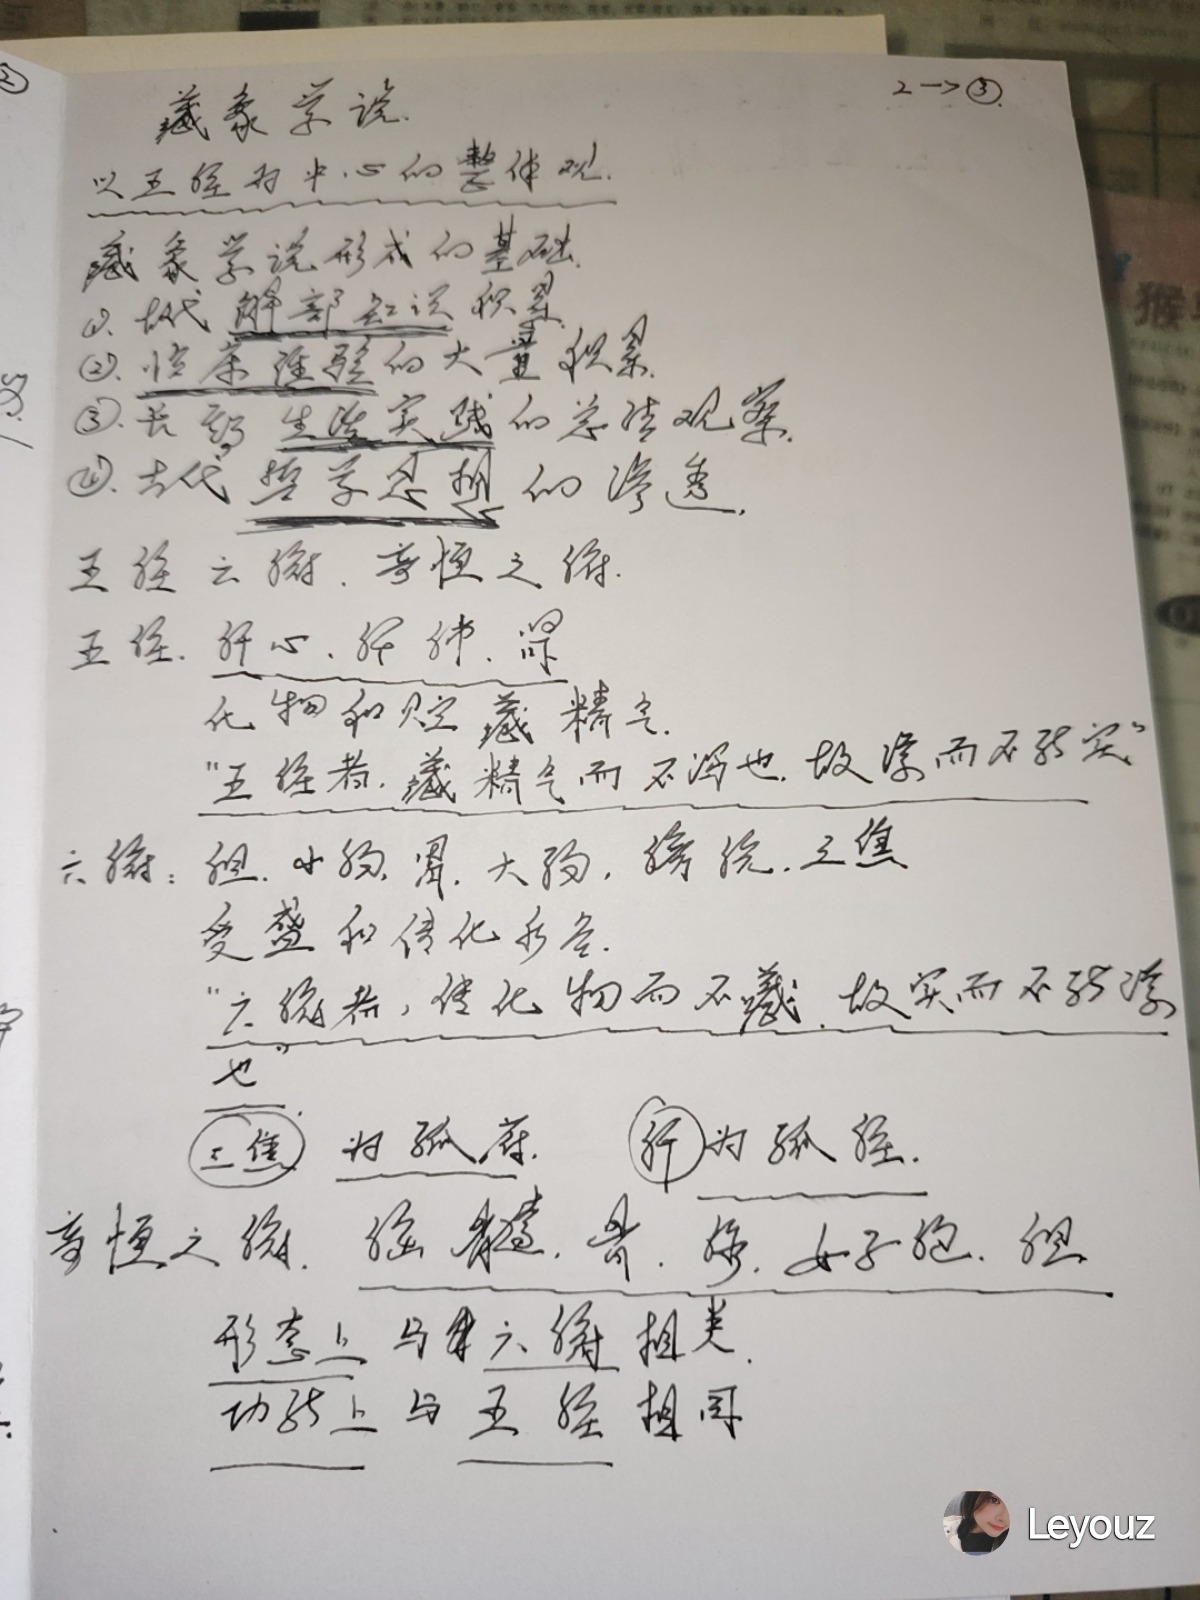 2→③.
藏象学说.
以五脏为中心的整体观.
藏象学说形成的基础.
①.古代解部知识积累.
②.临床经验的大量积累.
③.长期生活实践的总结观察.
④.古代哲学思想的渗透.
五脏六腑.奇恒之腑.
五脏.肝心.肝肺.肾
化物和贮藏精气.
"五脏者.藏精气而不泻也.故满而不能实"
六腑:胆.小肠.胃.大肠.膀胱.三焦
受盛和传化水谷.
"六腑者,传化物而不藏.故实而不能满
也".
三焦为孤府.肝为孤脏.
奇恒之腑.脑髓.骨.脉.女子胞.胆.
形态上与六腑相类.
功能上与五脏相同
猴
Leyouz